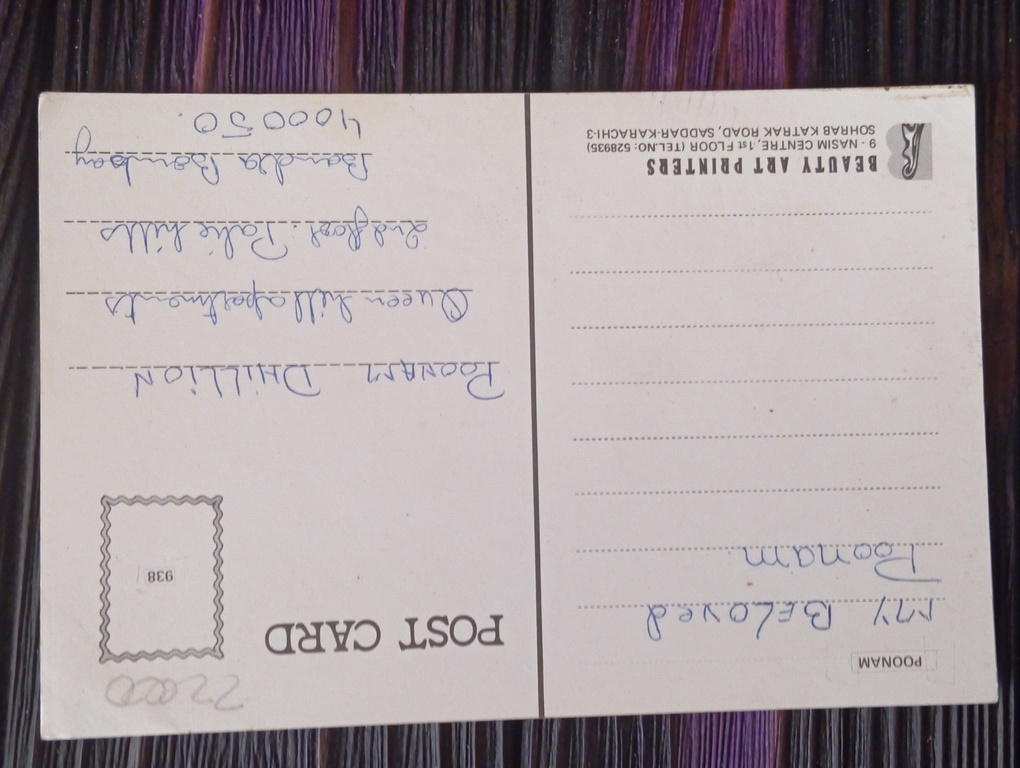 POONAM
MY BELOVED
Poonam
BEAUTY ART PRINTERS
9 - NASIM CENTRE, 1st FLOOR (TEL.NO: 528935)
SOHRAB KATRAK ROAD, SADDAR-KARACHI-3
22000
POST CARD
938
POONAM DHILLION
Queen hill apartments
2nd floor. Palie hills
Bandra Bombay
400050.